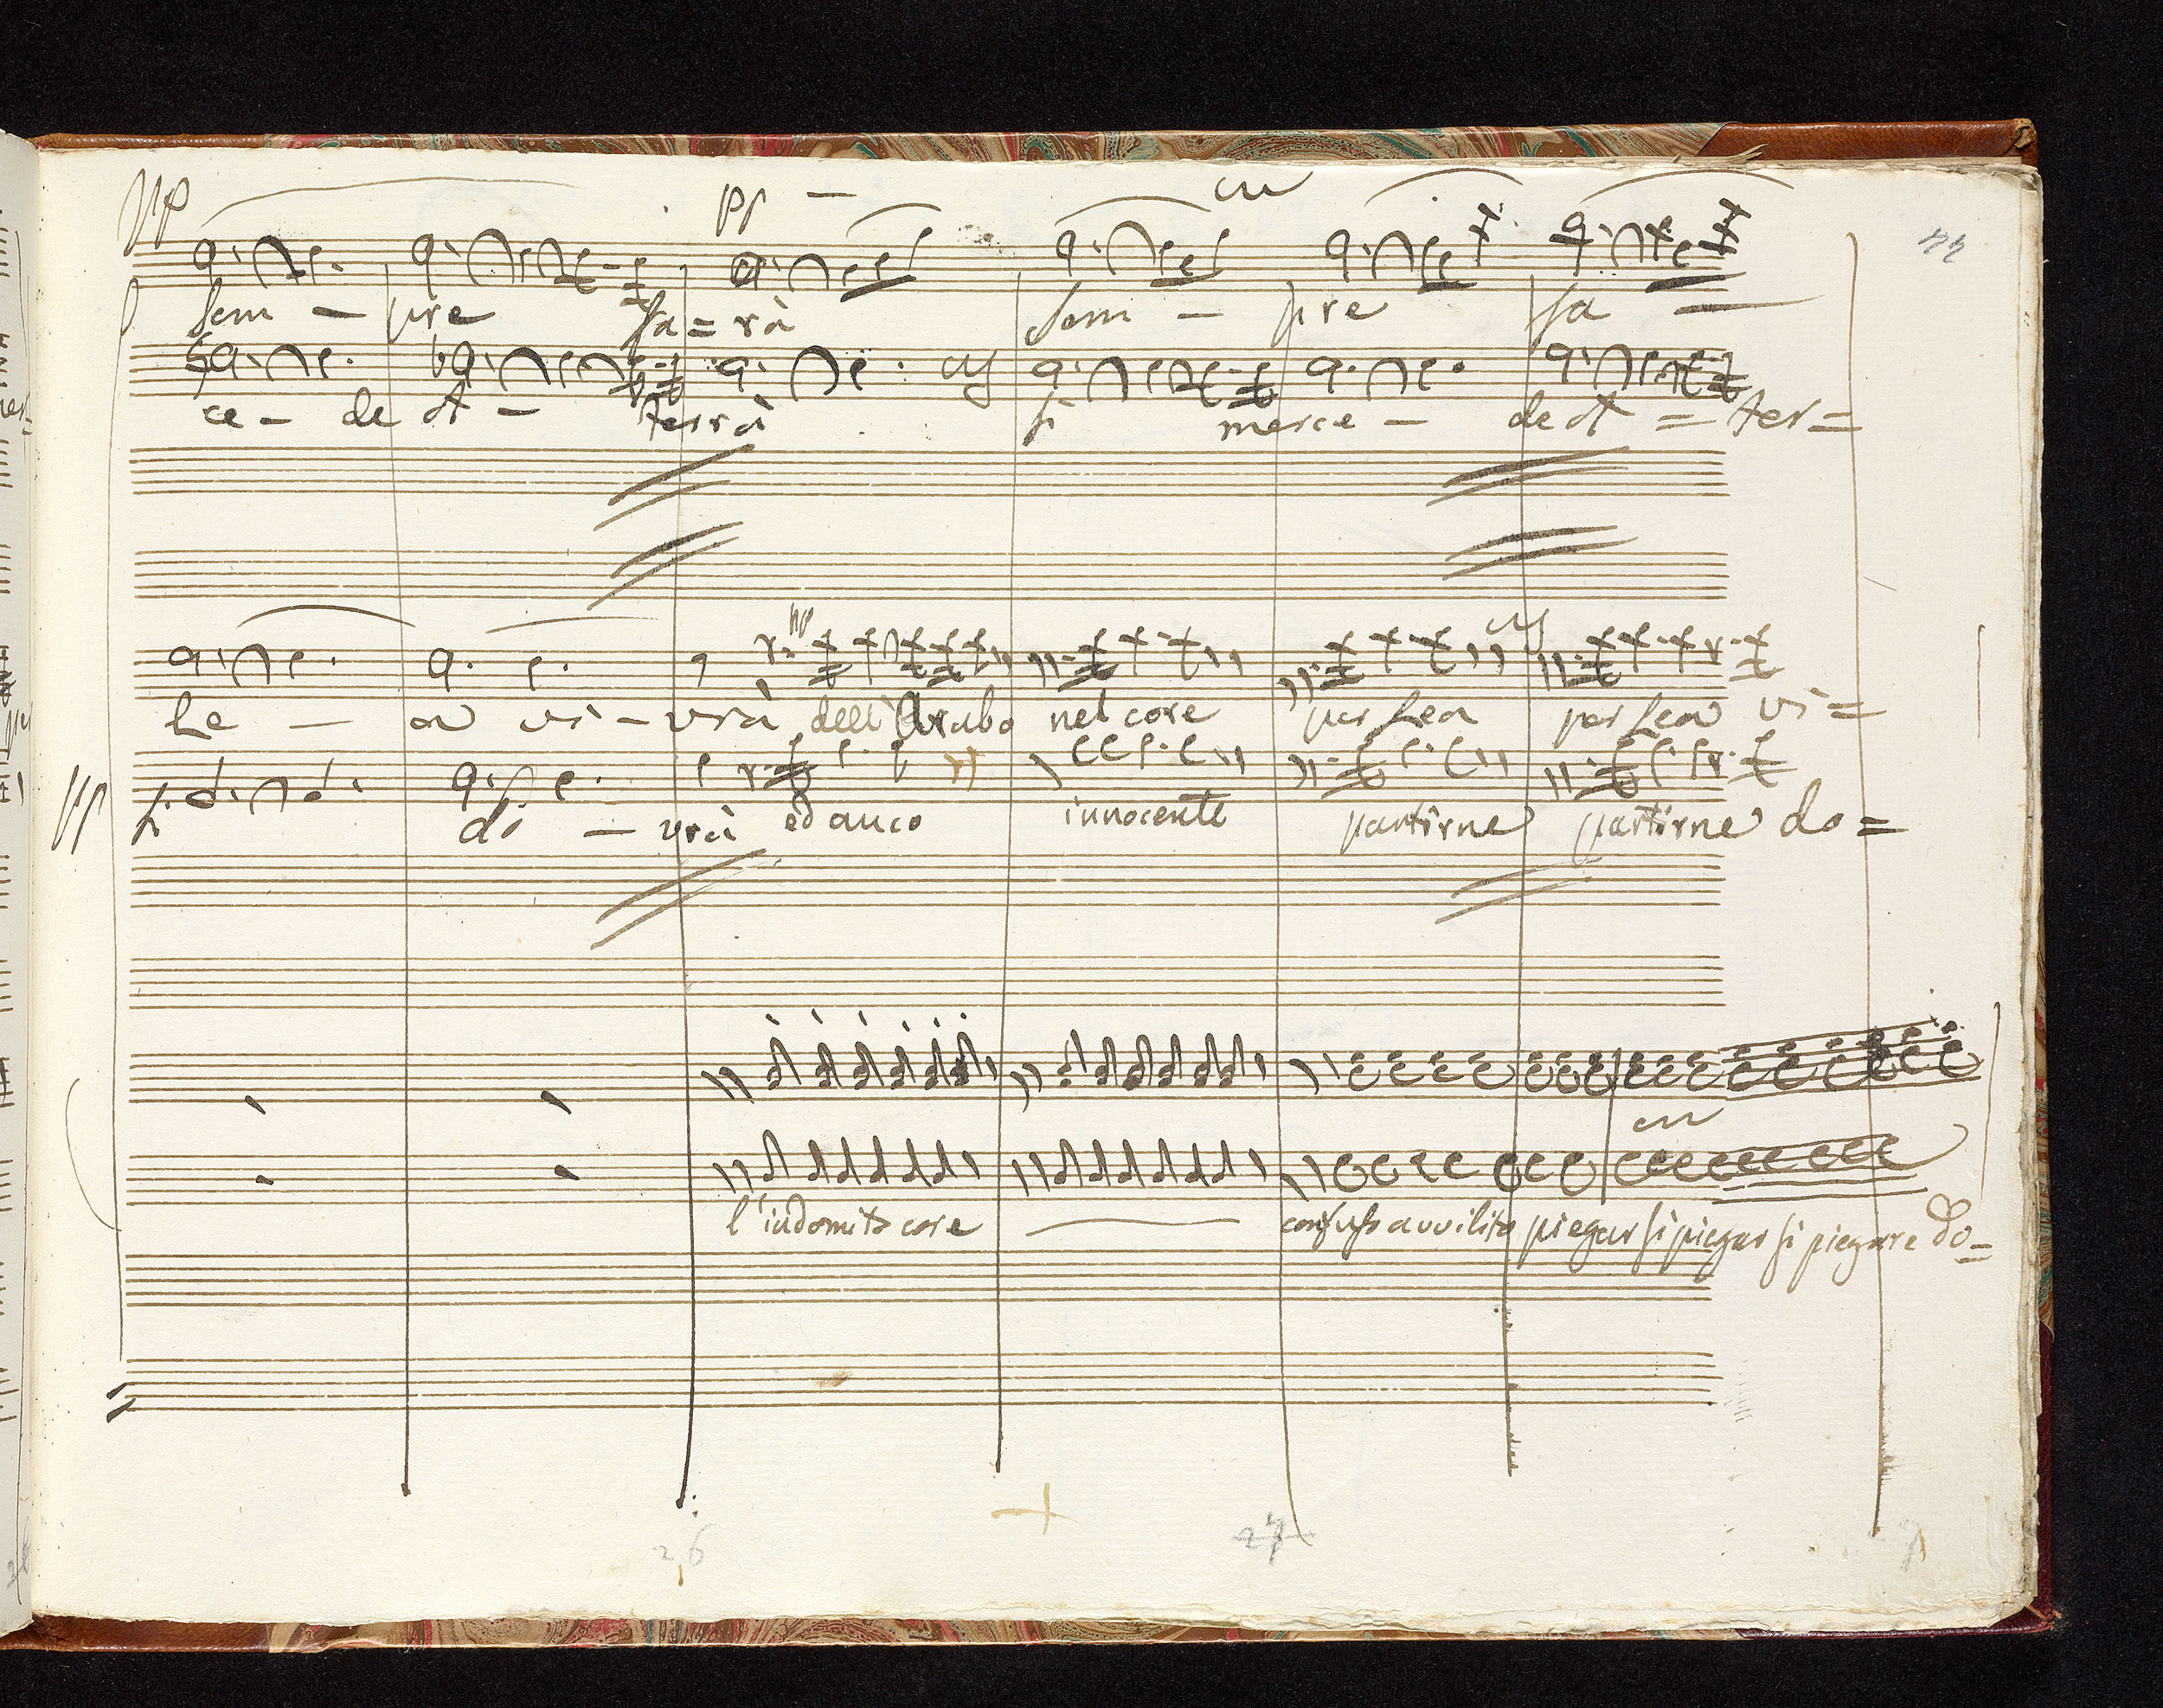 pp pp
sem - pre sa = rà sem - pre sa
ce - de A - terrà si merce - de A = ter =
Le - on vi - vrà dell'Arabo nel core per Leon per Leon vi =
pp si do - vrà ed anco innocente partirne partirne do =
l'indomito core confuso avvilito piegar si piegar si piegare do =
26 27